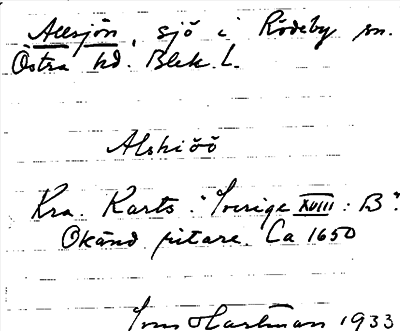 Allsjön, sjö i Rödeby sn.
Östra hd. Blek. l.
Alskiöö
Kra. Karts. "Sverige XVIII: B".
Okänd ritare. Ca 1650
Hartman 1933